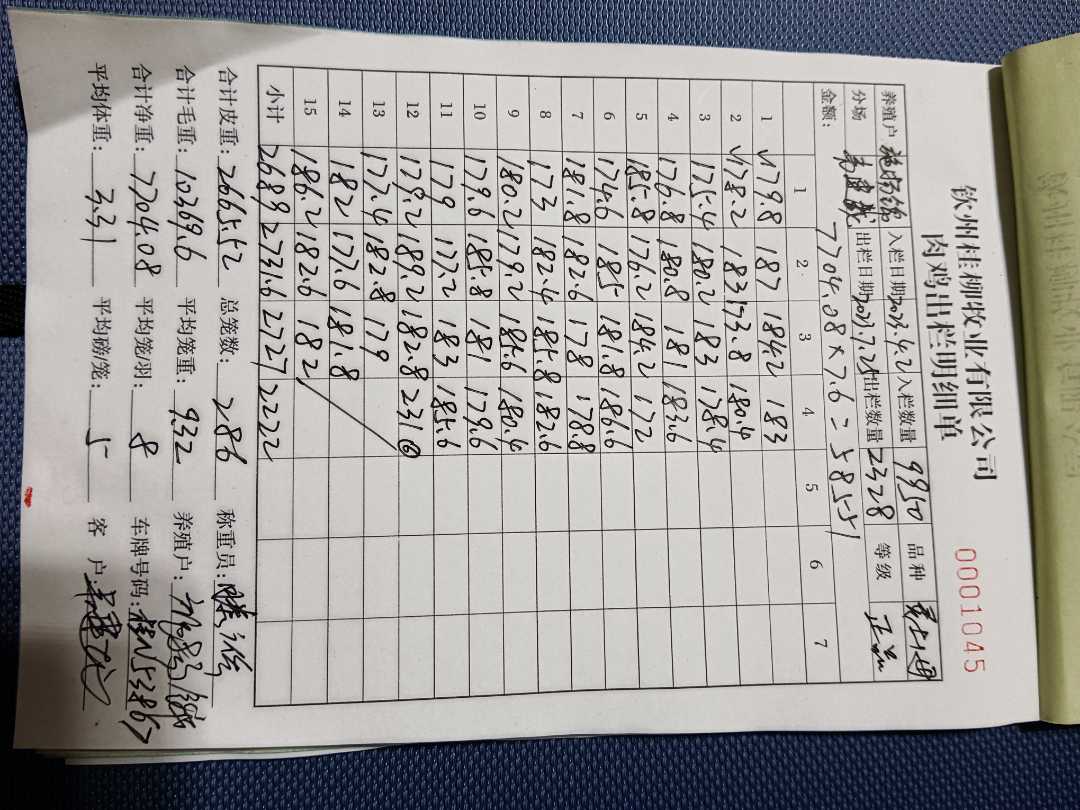 钦州桂柳牧业有限公司
肉鸡出栏明细单
0001045
养殖户 入栏日期 2023.4.2 入栏数量 9950 品种
分场 出栏日期 2023.7.25 出栏数量 2328 等级 正品
金额: 7704.08×7.6=58551
1 2 3 4 5 6 7
1 179.8 187 184.2 183
2 178.2 183 173.8 180.4
3 175.4 180.2 183 178.4
4 176.8 180.8 181 183.6
5 185.8 176.2 184.2 172
6 174.6 185 181.8 186.6
7 181.8 182.6 178 178.8
8 173 182.4 185.8 182.6
9 180.2 179.2 185.6 180.4
10 179.6 185.8 181 179.6
11 179 177.2 183 185.6
12 179.2 189.2 182.8 231
13 177.4 182.8 179
14 182 177.6 181.8
15 186.2 182.6 182
小计 2689 2731.6 2727 2222
合计皮重: 2665.52 总笼数: 286 称重员:
合计毛重: 10369.6 平均笼重: 9.32 养殖户:
合计净重: 7704.08 平均笼/羽: 8 车牌号码:
平均体重: 3.31 平均磅/笼: 5 客户: